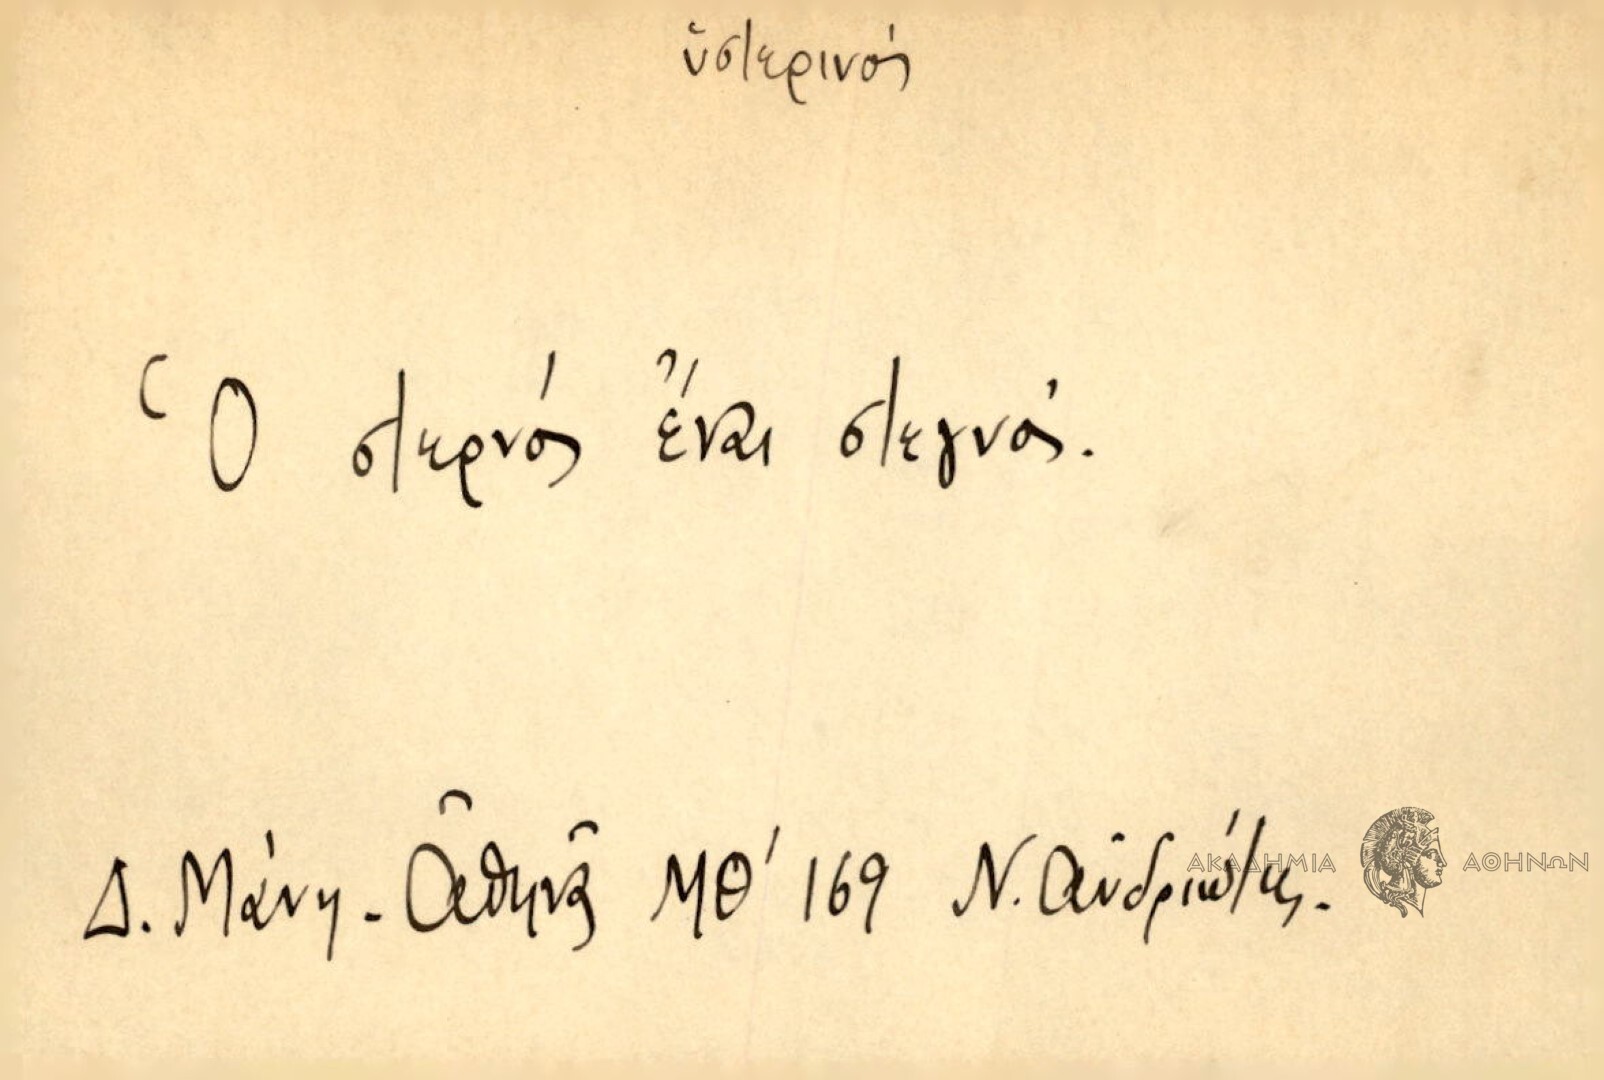 ὑστερινός
Ὁ στερνός ἔναι στεγνός.
Δ. Μάνη - Ἀθηνᾶ ΜΘ' 169 Ν. Ἀνδριώτης.
ΑΚΑΔΗΜΙΑ ΑΘΗΝΩΝ